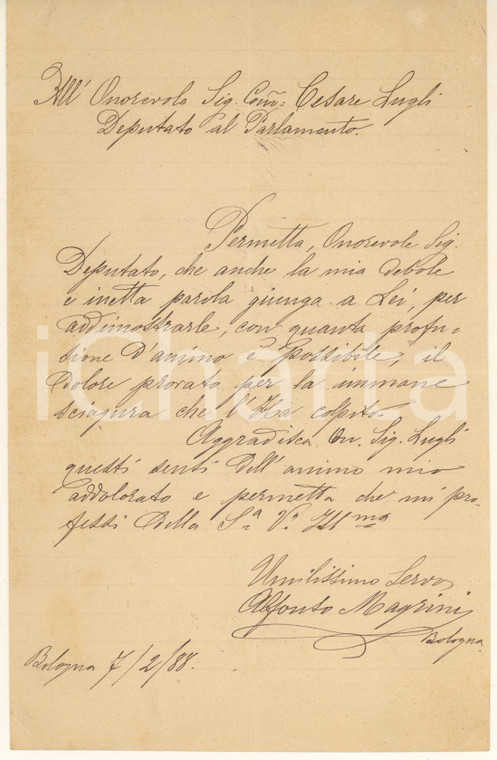 All' Onorevole Sig. Com̃= Cesare Lugli
Deputato al Parlamento.
Permetta, Onorevole Sig.
Deputato, che anche la mia debole
e inetta parola giunga a Lei, per
addimostrarle, con quanta profu-
sione d'animo è possibile, il
dolore provato per la immane
sciagura che l'Ha colpito.
Aggradisca On. Sig. Lugli
questi sensi dell'animo mio
addolorato e permetta che mi pro-
fessi della S.a V.a Ill.ma
Umilissimo Servo
Alfonso Magrini
Bologna
Bologna 7/2/88.
iCharta